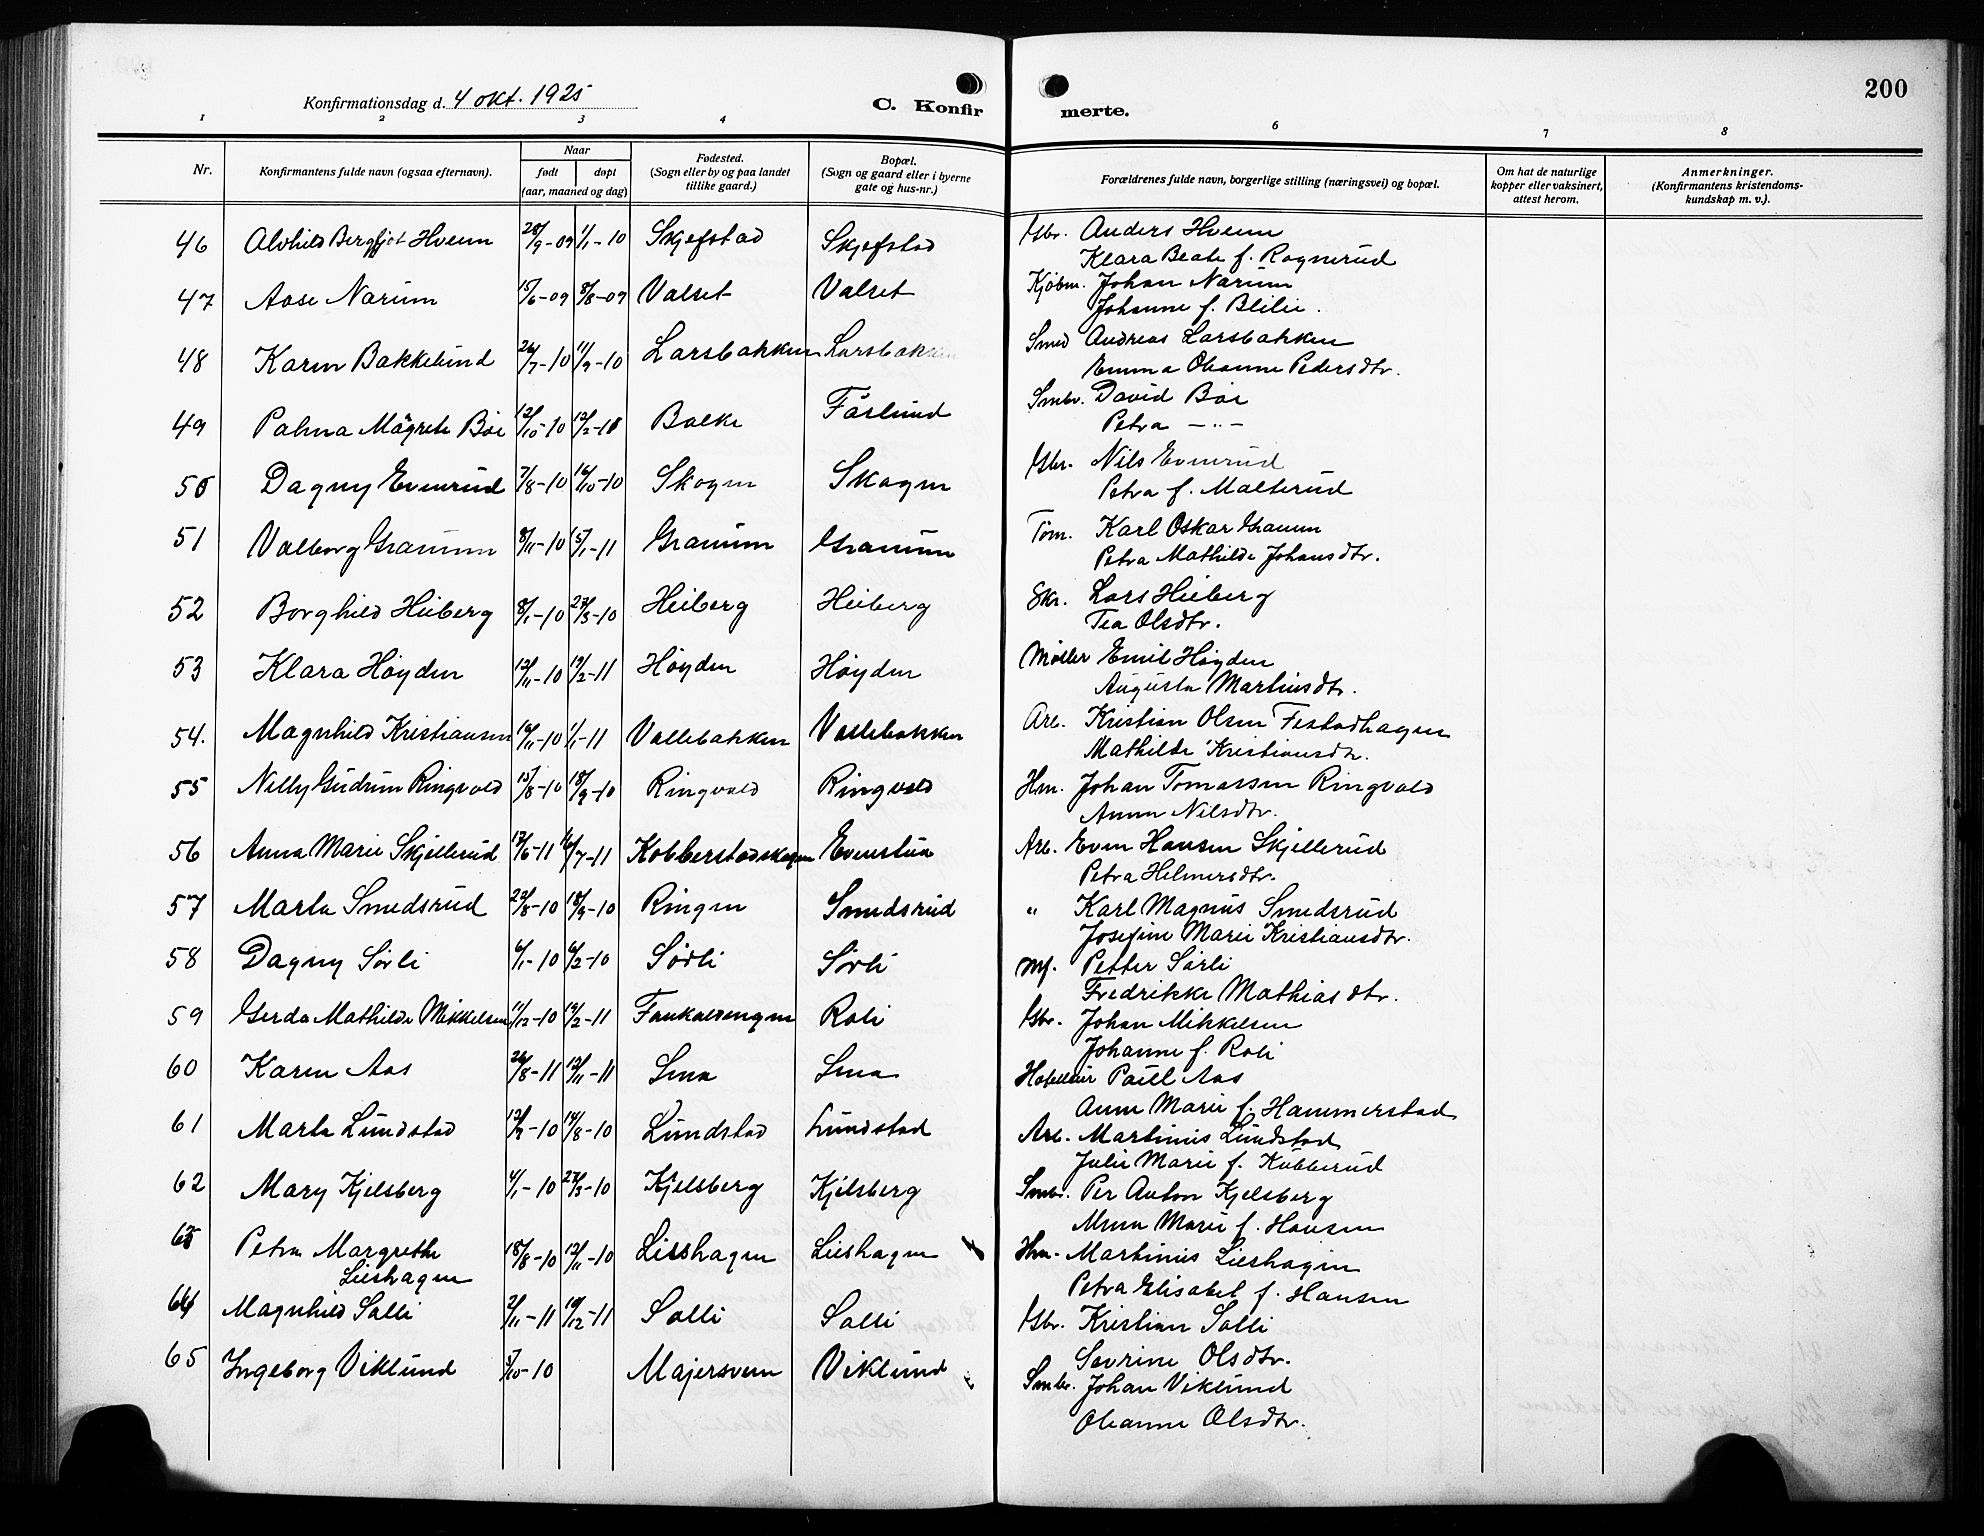 200
Konfirmationsdag d. 4 okt. 1925
C. Konfirmerte.
1 2 3 4 5 6 7 8
Nr. Konfirmantens fulde navn (ogsaa efternavn). Naar født døpt (aar, maaned og dag) Fødested. (Sogn eller by og paa landet tillike gaard.) Bopæl. (Sogn og gaard eller i byerne gate og hus-nr.) Forældrenes fulde navn, borgerlige stilling (næringsvei) og bopæl. Om hat de naturlige kopper eller vaksinert, attest herom. Anmerkninger. (Konfirmantens kristendoms-kundskap m. v.).
46 Alvhild Bergljot Hveem 28/9-09 1/1-10 Skjefstad Skjefstad Gbr. Anders Hveem
Klara Beate f. Rognerud
47 Aase Narum 15/6-09 8/8-09 Valset Valset Kjøbm. Johan Narum
Johanne f. Blilie.
48 Karen Bakkelund 26/7-10 11/9-10 Larsbakken Larsbakken Smed Andreas Larsbakken
Emma Oleanne Pedersdtr.
49 Palma Magrete Bøe 12/10-10 12/2-11 Balke Fårlund Smbr. David Bøe
Petra -"-
50 Dagny Evenrud 7/8-10 16/10-10 Skogen Skogen Gbr. Nils Evenrud
Petra f. Malterud
51 Valborg Granum 8/11-10 15/1-11 Granum Granum Tøm. Karl Oskar Granum
Petra Mathilde Johansdtr.
52 Borghild Heiberg 8/1-10 27/3-10 Heiberg Heiberg Skr. Lars Heiberg
Tea Olsdtr.
53 Klara Høyden 12/11-10 19/2-11 Høyden Høyden Møller Emil Høyden
Augusta Martinsdtr.
54. Magnhild Kristiansen 10/11-10 1/1-11 Vallebakken Vallebakken Arb. Kristian Olsen Festadhagen
Mathilde Kristiansdtr.
55 Nelly Gudrun Ringvold 15/8-10 18/9-10 Ringvold Ringvold Hm. Johan Tomassen Ringvold
Anna Nilsdtr.
56 Anna Marie Skjellerud 17/6-11 16/7-11 Kobberstadskogen Evenstua Arb. Even Hansen Skjellerud
Petra Helmersdtr.
57 Marta Smedsrud 22/8-10 18/9-10 Ringen Smedsrud " Karl Magnus Smedsrud
Josefine Marie Kristiansdtr.
58 Dagny Sørli 6/1-10 6/2-10 Sørli Sørli Mf. Petter Sørli
Fredrikke Mathiasdtr.
59 Gerda Mathilde Mikkelsen 11/12-10 12/2-11 Faukalengen Roli Gbr. Johan Mikkelsen
Johanne f. Roli
60 Karen Aas 26/8-11 12/11-11 Lena Lena Paul Aas
Anne Marie f. Hammerstad
61 Marta Lundstad 14/8-10 Lundstad Lundstad Arb. Martinus Lundstad
Julie Marie f. Kobberud
62 Mary Kjelsberg 4/1-10 27/3-10 Kjelsberg Kjelsberg Smbr. Per Anton Kjelsberg
Anna Marie f. Hansen
63 Petra Margrethe 18/8-10 12/11-10 Lieshagen Lieshagen Hm. Martinus Lieshagen
Lieshagen Petra Elisabet f. Hansen
64 Magnhild Solli 2/11-11 10/12-11 Solli Solli Gbr. Kristian Solli
Sevrine Olsdtr.
65 Ingeborg Viklund /10-10 Majersveen Viklund Smbr. Johan Viklund
Oleanne Olsdtr.